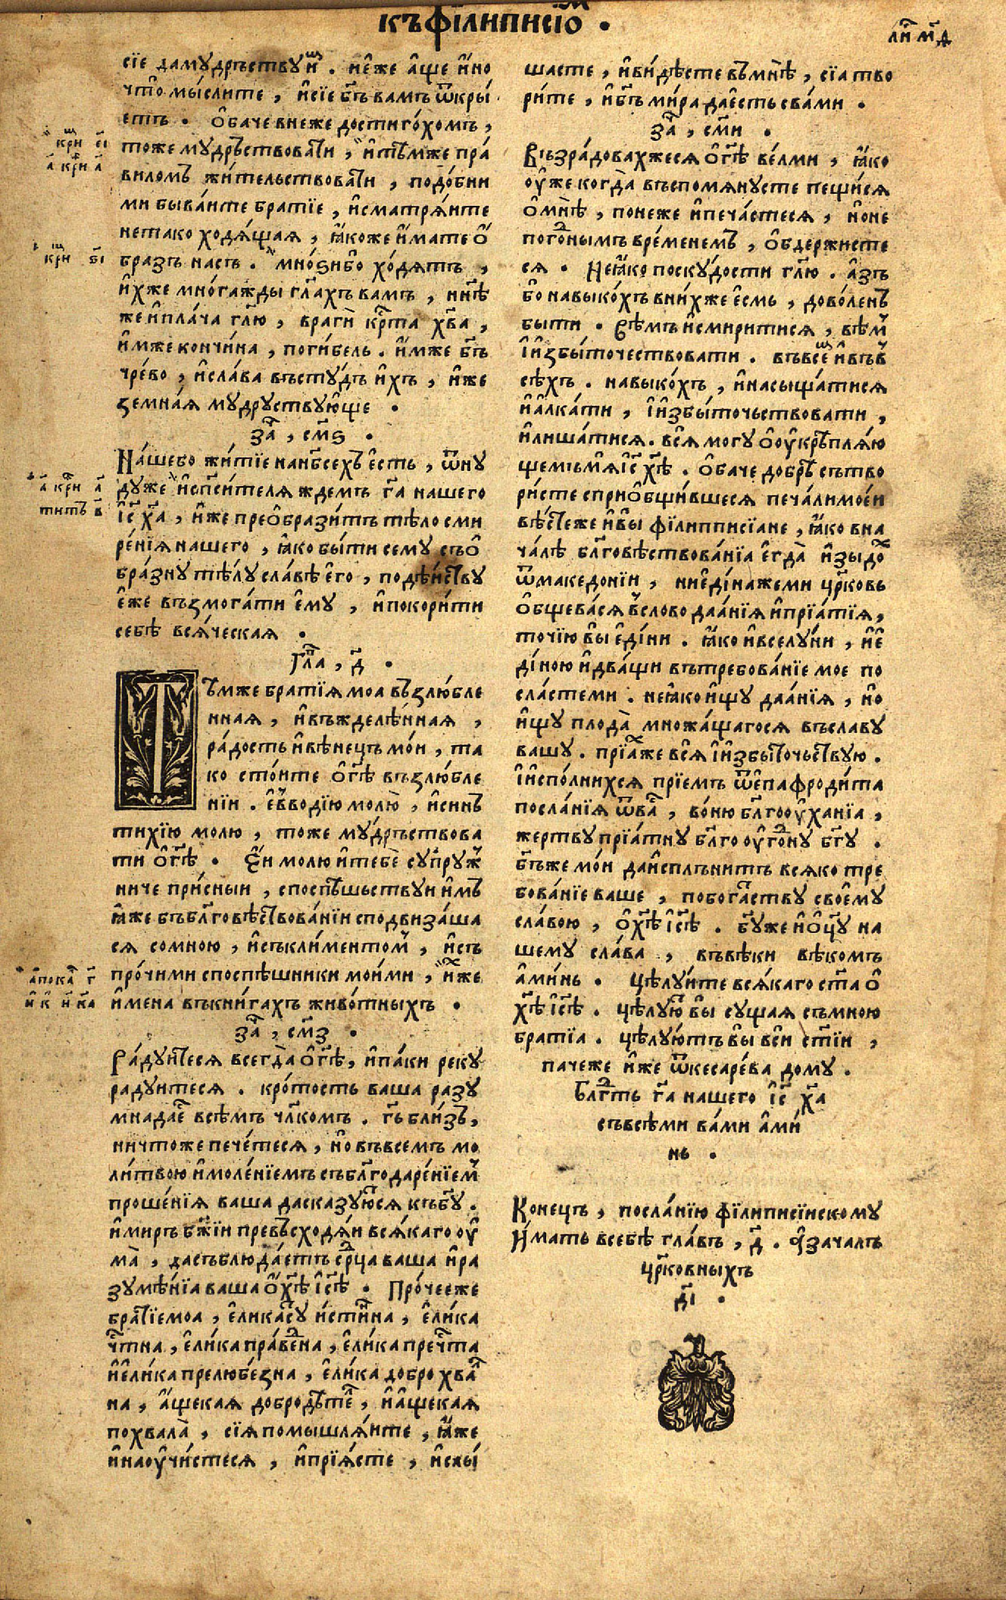 къ філиписїѡм .
ли́ м҃д
сїе да мꙋ́дрьствꙋи҆м . и҆е́же а҆́ще и҆́но
что̀ мы́слите , и҆сїе бг҃ъ вамъ ѿкры́
етъ . ѻ҆ба́че внеже достиго́хомъ ,
тоже мꙋ́дръствовати , и҆ тѣ́мже пра́
виломъ жи́тельствовати , подо́бни
ми быва́ите бра́тїе , и҆ сматря́ите
нетако ходя́щая , ꙗ҆́коже и҆́мате ѻ҆́
бразъ насъ . мно́ѕи бо̀ хо́дятъ ,
и҆́хже мно́гажды гл҃ахъ вамъ , ннѣ
же и҆ пла́ча гл҃ю , врагѝ крⷭ҇та хв҃а ,
и҆́мже кончи́на , поги́бель . и҆́мже бг҃ъ
чре́во , и҆ сла́ва въстꙋ́дъ и҆́хъ , и҆́же
земна́я мꙋ́дрꙋствꙋющe .
за҃ , см҃ѕ .
На́ше бо жи́тїе на нб҃сехъ є҆́сть , ѿнꙋ
дꙋ́же и҆ сп҃си́теля ждемъ гд҃а нашего
і҆с҃ хд҃а , и҆́же преѻ҆брази́тъ тѣ́ло сми
ре́нїя нашего , ꙗ҆́ко бы́ти семꙋ съѻ҆
бра́знꙋ тѣ́лꙋ сла́вѣ є҆го̀ , по дѣ́иствꙋ
є҆́же възмога́ти є҆мꙋ̀ , и҆ покори́ти
себѣ̀ вся́ческая .
гла҃ , д҃ .
Тѣ́мже бра́тїя моа̀ възлю́бле
нная , и҆ въжделе́нная ,
ра́дость и҆ вѣне́цъ мо́и , та
ко сто́ите ѻ҆ гд҃ѣ възлю́бле
нїи . є҆ѵво́дїю молю̀ , и҆ син
тихїю молю , тоже мꙋ́дръствова
ти ѻ҆ гд҃ѣ . Є҆́и молю и҆ тебѐ сꙋпрꙋ́ж
ниче при́сныи , споспѣ́шьствꙋи и҆мъ
ꙗ҆́же въ бл҃говѣствова́нїи сподвиза́ша
ся сомною , и҆ съ кли́ментом , и҆ съ
про́чими споспѣ́шники мои́ми , и҆́хже
и҆мена въ кни́гахъ живо́тныхъ .
за҃ , см҃з .
Ра́дꙋитеся всегда̀ ѻ҆ гд҃ѣ , и҆ па́ки рекꙋ
ра́дꙋитеся . кро́тость ваша разꙋ
мна да е҆ всѣ́мъ чл҃комъ . гд҃ь бли́зъ ,
ничтоже пецѣ́теся , но̀ въ всемъ мо
ли́твою и҆ моле́нїемъ съ бл҃годаре́нїем
проше́нїя ваша да сказꙋ́ются къ бг҃ꙋ .
и҆ миръ бж҃їи превъсходя́и вся́каго ᲂу҆
ма̀ , да съблюда́етъ ср҃ца ваша и҆ ра
зꙋмѣ́нїа ваша ѻ҆ хс҃ѣ і҆с҃ѣ . Про́чее же
бра́тїе моа , є҆ли́ка сꙋ и҆́стинна , є҆ли́ка
чⷭ҇тна , є҆ли́ка пра́ведна , є҆ли́ка пречⷭ҇та
и҆ є҆ли́ка прелюбе́зна , є҆ли́ка добро хва́л
на , а҆́ще кая добродѣ́тель , и҆ а҆́ще кая
похвала̀ , сїя помышля́ите , ꙗ҆́же
и҆ наᲂу҆чи́стеся , и҆ прїя́сте , и҆ слы́
шасте , и҆ ви́дѣсте въ мнѣ̀ , сїа тво
ри́те , и҆ бг҃ъ ми́ра да е҆сть с ва́ми .
за҃ , см҃и .
Възра́довахжеся ѻ҆ гд҃ѣ ве́лми , ꙗ҆́ко
ᲂу҆́же когда̀ въспомянꙋсте пещи́ся
ѻ҆ мнѣ̀ , понеже и҆ печа́стеся , и҆ оне
пого́дным вре́менемъ , ѻ҆бдержисте
ся . Не ꙗ҆́ко по скꙋ́дости гл҃ю . а҆́зъ
бо навыко́хъ в ни́хже є҆смь , дово́ленъ
быти . вѣмъ и҆ смири́тися , вѣм
и҆ и҆збы́точествовати . въ всем и҆ въ в
сѣхъ . навыко́хъ , и҆ насыща́тися
и҆ а҆лка́ти , и҆ и҆збы́точьствовати ,
и҆ лиша́тися . вся̀ могꙋ̀ ѻ҆ ᲂу҆крѣпля́ю
щемъ мя̀ і҆с҃ хс҃ѣ . ѻ҆ба́че добрѣ̀ сътво
ри́сте спріѻ҆бщи́вшеся печа́ли мое́и
вѣ́сте же и҆ вы̀ філипписїане , ꙗ҆́ко в на
ча́лѣ бл҃говѣствова́нїа є҆гда̀ и҆зыдо́х
ѿ македонїи , ни є҆ди́на же ми цр҃ковь
ѻ҆бщева́ся в слово даа́нїя и҆ прїа́тїя ,
то́чїю вы̀ є҆ди́ни . ꙗ҆́ко и҆ в селꙋ́ни , и҆ є҆
ди́ною и҆ два́щи въ требова́нїе мое по
сла́сте ми . не ꙗ҆́ко и҆щꙋ даа́нїя , но̀
и҆щꙋ плода̀ множа́щагося въ сла́вꙋ
вашꙋ . прїа́х же вся̀ и҆ и҆збы́точьствꙋю .
и҆ и҆спо́лнихся прїе́мъ ѿ є҆пафроди́та
посла́нїя ѿ ва́с , во́ню бл҃гоᲂу҆ха́нїа ,
же́ртвꙋ прїа́тнꙋ бл҃гоᲂу҆го́днꙋ бг҃ꙋ .
бг҃ъ же мо́и да и҆спълни́тъ вся́ко тре
бова́нїе ваше , по бога́ствꙋ своемꙋ
сла́вою , ѻ҆ хс҃ѣ і҆с҃ѣ . бг҃ꙋ же и҆ ѻ҆ц҃ꙋ на
шемꙋ сла́ва , въ вѣ́ки вѣ́комъ
а҆ми́нь . Цѣлꙋ́ите вся́каго ст҃а ѻ҆
хс҃ѣ і҆с҃ѣ . цѣлꙋ́ю вы̀ сꙋщая съ мною
бра́тїа . цѣлꙋ́ютъ вы̀ всѝ ст҃їи ,
па́че же и҆́же ѿ кеса́рева домꙋ .
Блгⷣть гд҃а нашего і҆с҃ хд҃а
съ всѣ́ми ва́ми а҆ми́
нь .
Коне́цъ , посла́нїю філипписїискомꙋ
И҆́мать в себѣ̀ гла́въ , д҃ . ᲂу҆ зача́лъ
цр҃ко́вныхъ
д҃і .